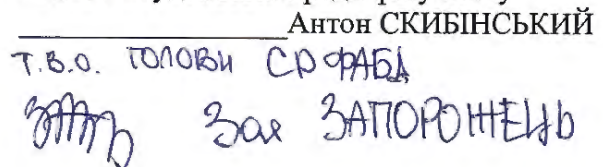 Антон СКИБІНСЬКИЙ
Т.В.О. ГОЛОВИ СРФАБД
Зоя ЗАПОРОЖЕЦЬ